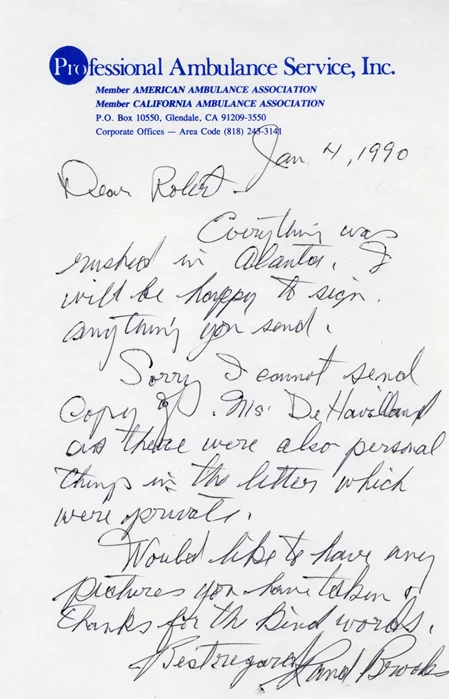 Professional Ambulance Service, Inc.
Member AMERICAN AMBULANCE ASSOCIATION
Member CALIFORNIA AMBULANCE ASSOCIATION
P.O. Box 10550, Glendale, CA 91209-3550
Corporate Offices — Area Code (818) 243-3141
Jan. 4, 1990
Dear Robert.
Everything was
rushed in Atlanta. I
will be happy to sign.
anything you send.
Sorry I cannot send
copy of. Ms. DeHavilland
as there were also personal
things in the letter which
were private.
Would like to have any
pictures you have taken &
thanks for the kind words.
Best regards Rand Brooks